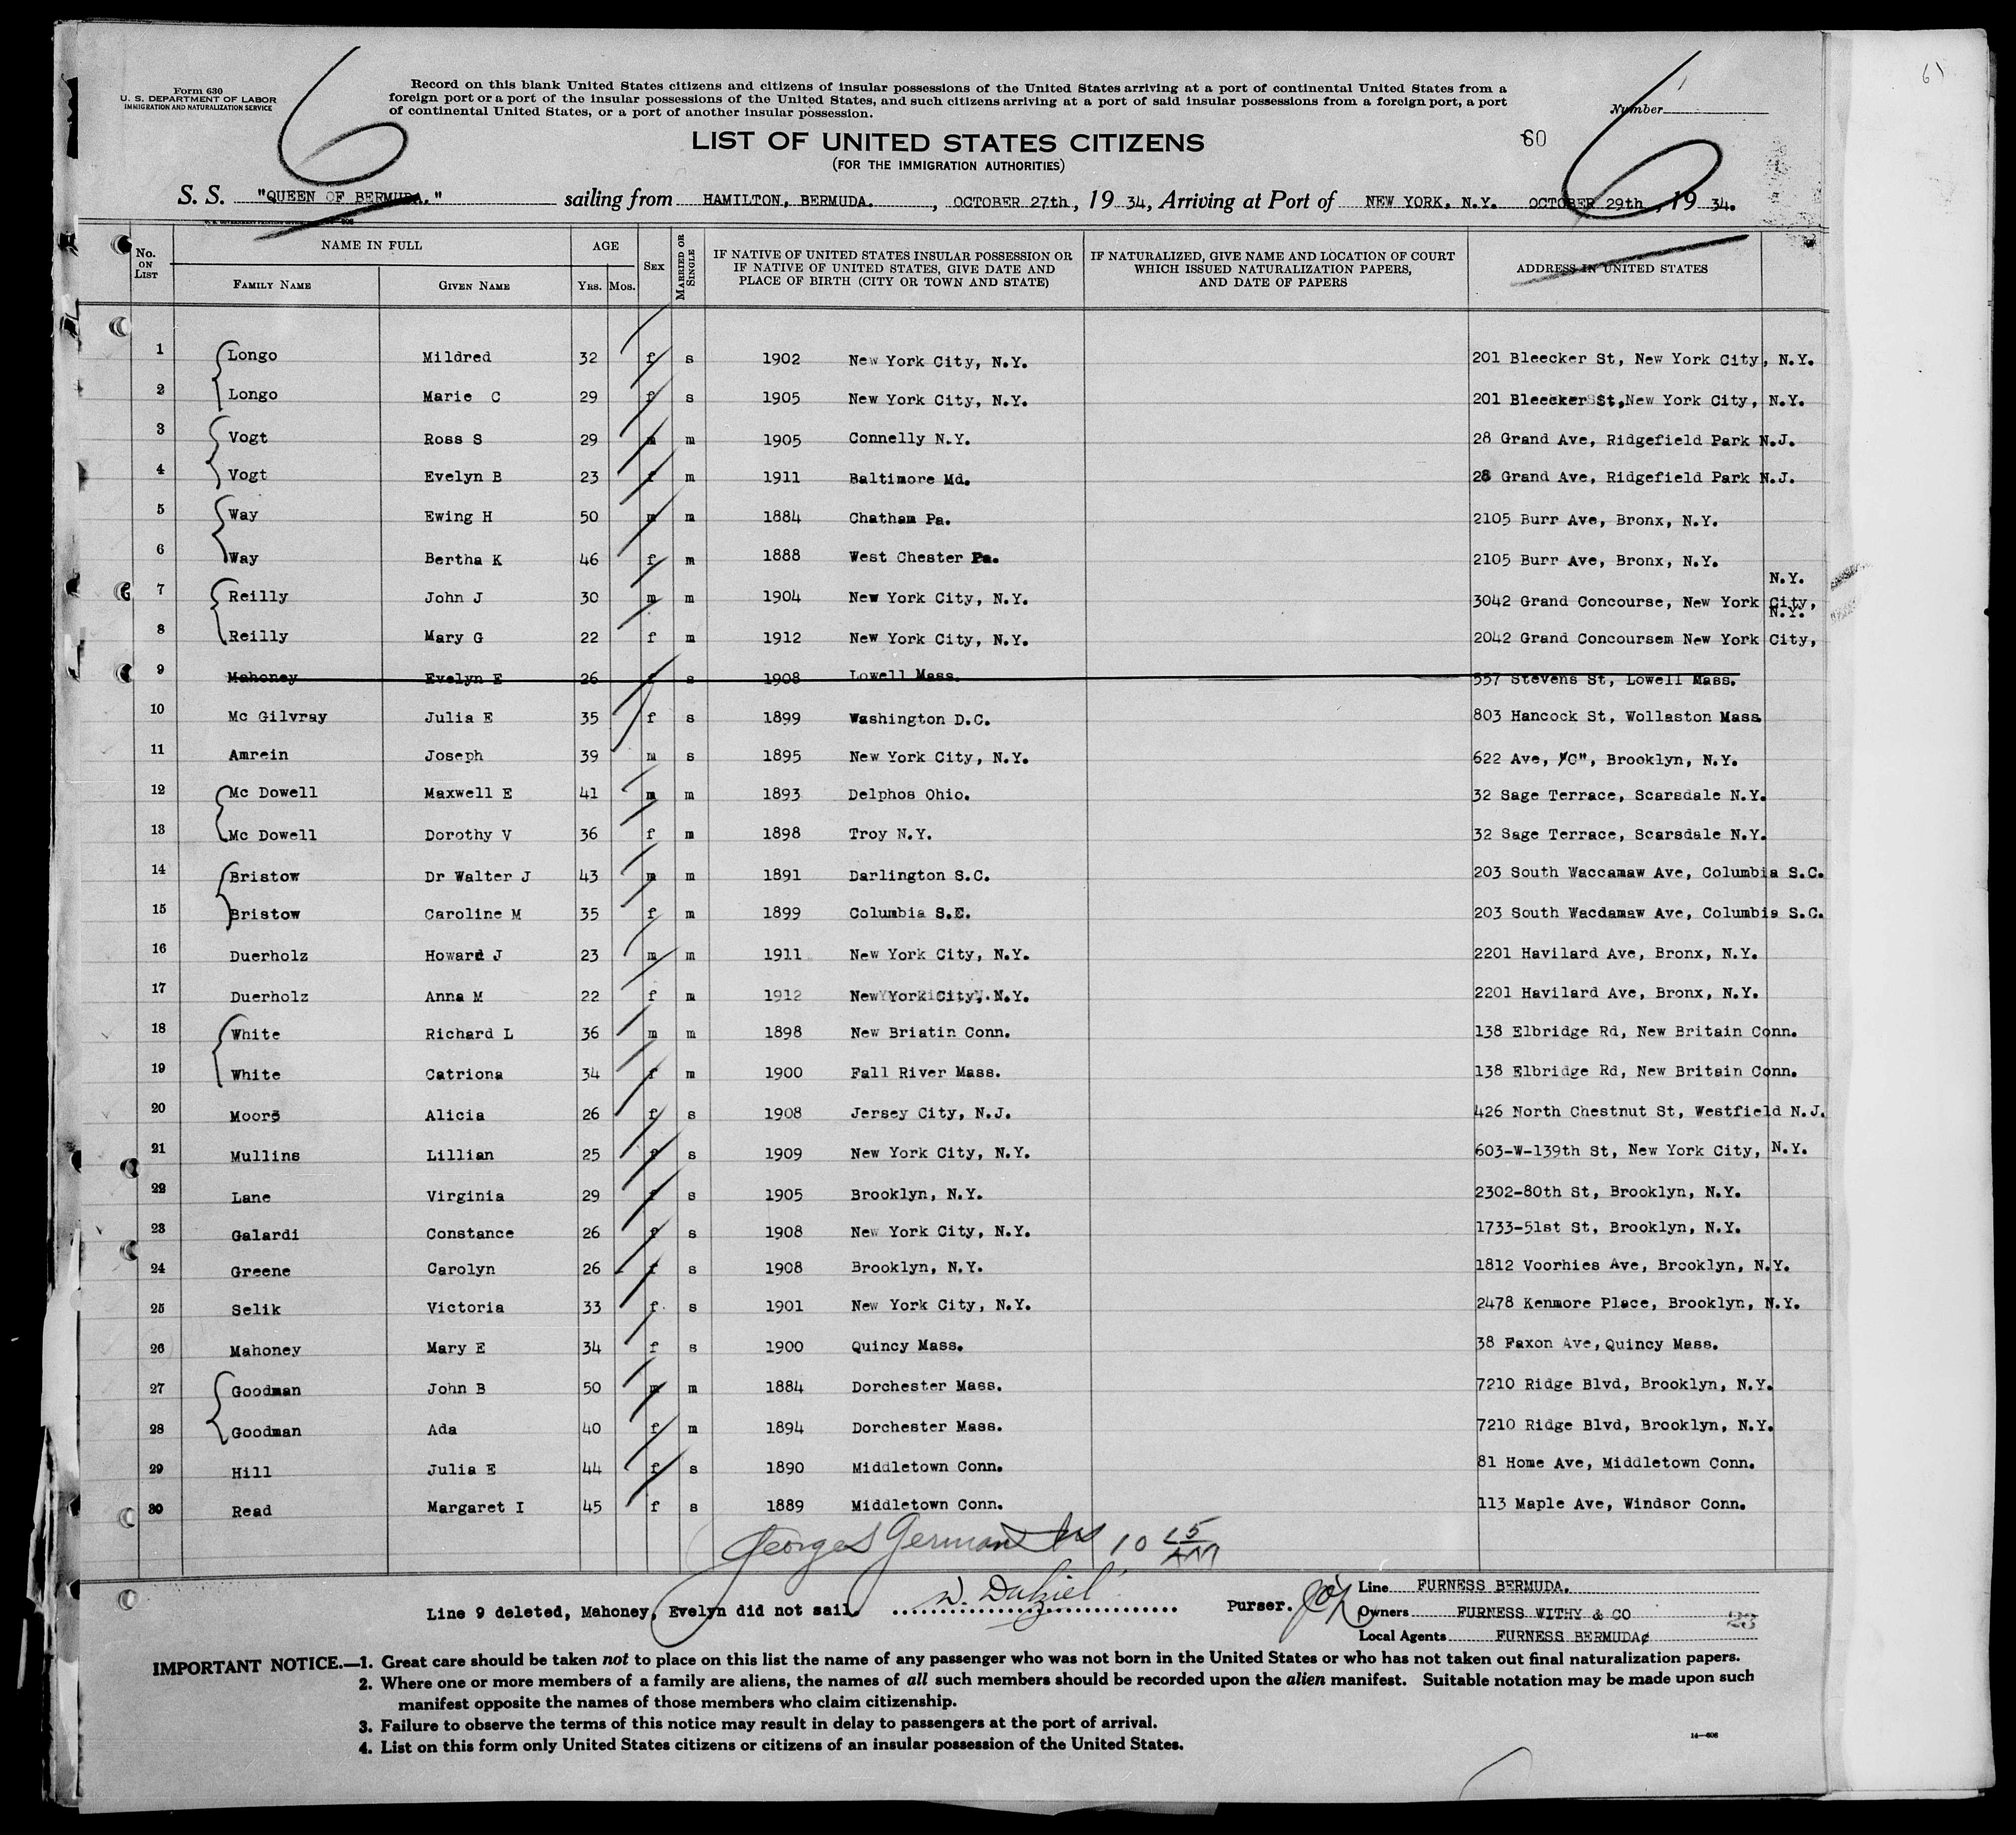 61
6
6
Form 630
U. S. DEPARTMENT OF LABOR
IMMIGRATION AND NATURALIZATION SERVICE
Record on this blank United States citizens and citizens of insular possessions of the United States arriving at a port of continental United States from a
foreign port or a port of the insular possessions of the United States, and such citizens arriving at a port of said insular possessions from a foreign port, a port
of continental United States, or a port of another insular possession.
Number
LIST OF UNITED STATES CITIZENS
60
(FOR THE IMMIGRATION AUTHORITIES)
S. S. "QUEEN OF BERMUDA." sailing from HAMILTON, BERMUDA. , OCTOBER 27th, 19 34, Arriving at Port of NEW YORK, N.Y. OCTOBER 29th, 19 34.
No. ON LIST NAME IN FULL FAMILY NAME GIVEN NAME AGE YRS. MOS. SEX MARRIED OR SINGLE IF NATIVE OF UNITED STATES INSULAR POSSESSION OR IF NATIVE OF UNITED STATES, GIVE DATE AND PLACE OF BIRTH (CITY OR TOWN AND STATE) IF NATURALIZED, GIVE NAME AND LOCATION OF COURT WHICH ISSUED NATURALIZATION PAPERS, AND DATE OF PAPERS ADDRESS IN UNITED STATES
1 Longo Mildred 32 f s 1902 New York City, N.Y. 201 Bleecker St, New York City, N.Y.
2 Longo Marie C 29 f s 1905 New York City, N.Y. 201 Bleecker St, New York City, N.Y.
3 Vogt Ross S 29 m m 1905 Connelly N.Y. 28 Grand Ave, Ridgefield Park N.J.
4 Vogt Evelyn B 23 f m 1911 Baltimore Md. 28 Grand Ave, Ridgefield Park N.J.
5 Way Ewing H 50 m m 1884 Chatham Pa. 2105 Burr Ave, Bronx, N.Y.
6 Way Bertha K 46 f m 1888 West Chester Pa. 2105 Burr Ave, Bronx, N.Y.
7 Reilly John J 30 m m 1904 New York City, N.Y. 3042 Grand Concourse, New York City, N.Y.
8 Reilly Mary G 22 f m 1912 New York City, N.Y. 2042 Grand Concoursem New York City, N.Y.
9 Mahoney Evelyn E 26 f s 1908 Lowell Mass. 557 Stevens St, Lowell Mass.
10 Mc Gilvray Julia E 35 f s 1899 Washington D.C. 803 Hancock St, Wollaston Mass
11 Amrein Joseph 39 m s 1895 New York City, N.Y. 622 Ave, "C", Brooklyn, N.Y.
12 Mc Dowell Maxwell E 41 m m 1893 Delphos Ohio. 32 Sage Terrace, Scarsdale N.Y.
13 Mc Dowell Dorothy V 36 f m 1898 Troy N.Y. 32 Sage Terrace, Scarsdale N.Y.
14 Bristow Dr Walter J 43 m m 1891 Darlington S.C. 203 South Waccamaw Ave, Columbia S.C.
15 Bristow Caroline M 35 f m 1899 Columbia S.C. 203 South Wacdamaw Ave, Columbia S.C.
16 Duerholz Howard J 23 m m 1911 New York City, N.Y. 2201 Havilard Ave, Bronx, N.Y.
17 Duerholz Anna M 22 f m 1912 New York City, N.Y. 2201 Havilard Ave, Bronx, N.Y.
18 White Richard L 36 m m 1898 New Briatin Conn. 138 Elbridge Rd, New Britain Conn.
19 White Catriona 34 f m 1900 Fall River Mass. 138 Elbridge Rd, New Britain Conn.
20 Moore Alicia 26 f s 1908 Jersey City, N.J. 426 North Chestnut St, Westfield N.J.
21 Mullins Lillian 25 f s 1909 New York City, N.Y. 603-W-139th St, New York City, N.Y.
22 Lane Virginia 29 f s 1905 Brooklyn, N.Y. 2302-80th St, Brooklyn, N.Y.
23 Galardi Constance 26 f s 1908 New York City, N.Y. 1733-51st St, Brooklyn, N.Y.
24 Greene Carolyn 26 f s 1908 Brooklyn, N.Y. 1812 Voorhies Ave, Brooklyn, N.Y.
25 Selik Victoria 33 f s 1901 New York City, N.Y. 2478 Kenmore Place, Brooklyn, N.Y.
26 Mahoney Mary E 34 f s 1900 Quincy Mass. 38 Faxon Ave, Quincy Mass.
27 Goodman John B 50 m m 1884 Dorchester Mass. 7210 Ridge Blvd, Brooklyn, N.Y.
28 Goodman Ada 40 f m 1894 Dorchester Mass. 7210 Ridge Blvd, Brooklyn, N.Y.
29 Hill Julia E 44 f s 1890 Middletown Conn. 81 Home Ave, Middletown Conn.
30 Read Margaret I 45 f s 1889 Middletown Conn. 113 Maple Ave, Windsor Conn.
George German 10 15 AM
Line 9 deleted, Mahoney, Evelyn did not sail. W. Dalziel Purser.
Line FURNESS BERMUDA.
Owners FURNESS WITHY & CO
23
Local Agents FURNESS BERMUDA¢
IMPORTANT NOTICE.—1. Great care should be taken not to place on this list the name of any passenger who was not born in the United States or who has not taken out final naturalization papers.
2. Where one or more members of a family are aliens, the names of all such members should be recorded upon the alien manifest. Suitable notation may be made upon such
manifest opposite the names of those members who claim citizenship.
3. Failure to observe the terms of this notice may result in delay to passengers at the port of arrival.
4. List on this form only United States citizens or citizens of an insular possession of the United States.
14—608